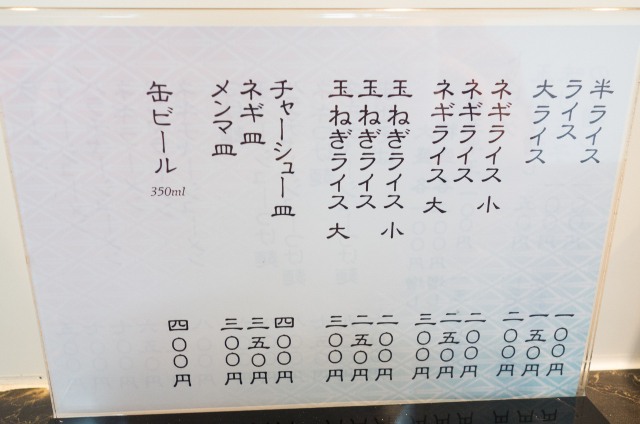 半ライス 一〇〇円
ライス 一五〇円
大ライス 二〇〇円
ネギライス 小 二〇〇円
ネギライス 二五〇円
ネギライス 大 三〇〇円
玉ねぎライス 小 二〇〇円
玉ねぎライス 二五〇円
玉ねぎライス 大 三〇〇円
チャーシュー皿 四〇〇円
ネギ皿 三五〇円
メンマ皿 三〇〇円
缶ビール 350ml 四〇〇円